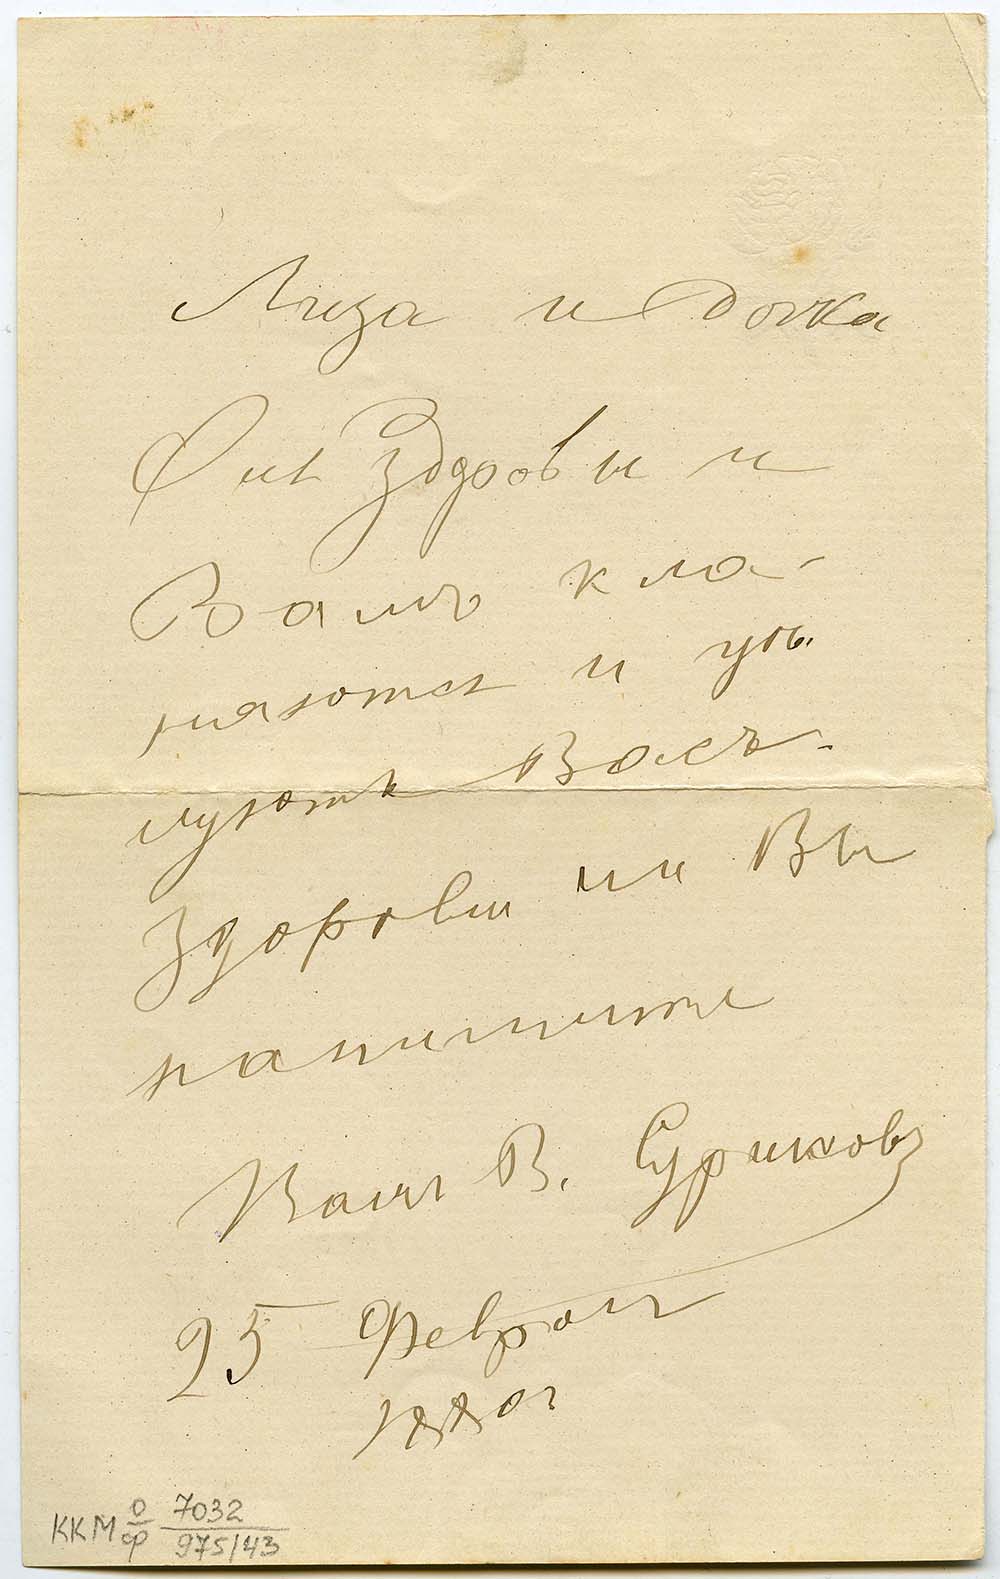 Лиза и дочка
Оля здоровы и
Вамъ кла-
няются и цѣ
луютъ Васъ.
Здоровы ли Вы
напишите
Вашъ В. Суриковъ
25 Февраля
1880 г
ККМ о/ф 7032/975/43